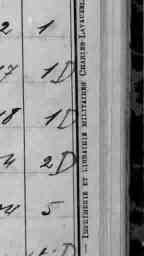 2 1
7 1 D
8 1 D
4 2 D
4 5
— IMPRIMERIE ET LIBRAIRIE MILITAIRES CHARLES-LAVAUZEL